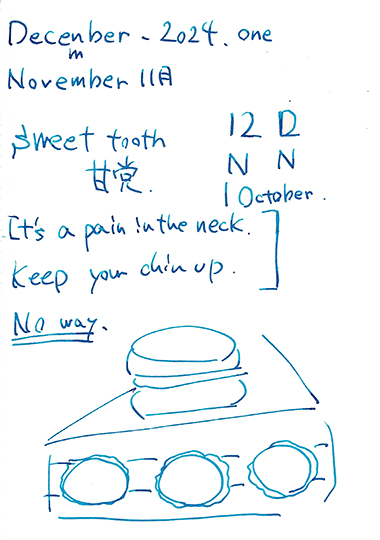 December - 2024. one
m
November 11月
Sweet tooth
甘党.
12 D
N N
1 October.
It's a pain in the neck.
Keep your chin up.
No way.